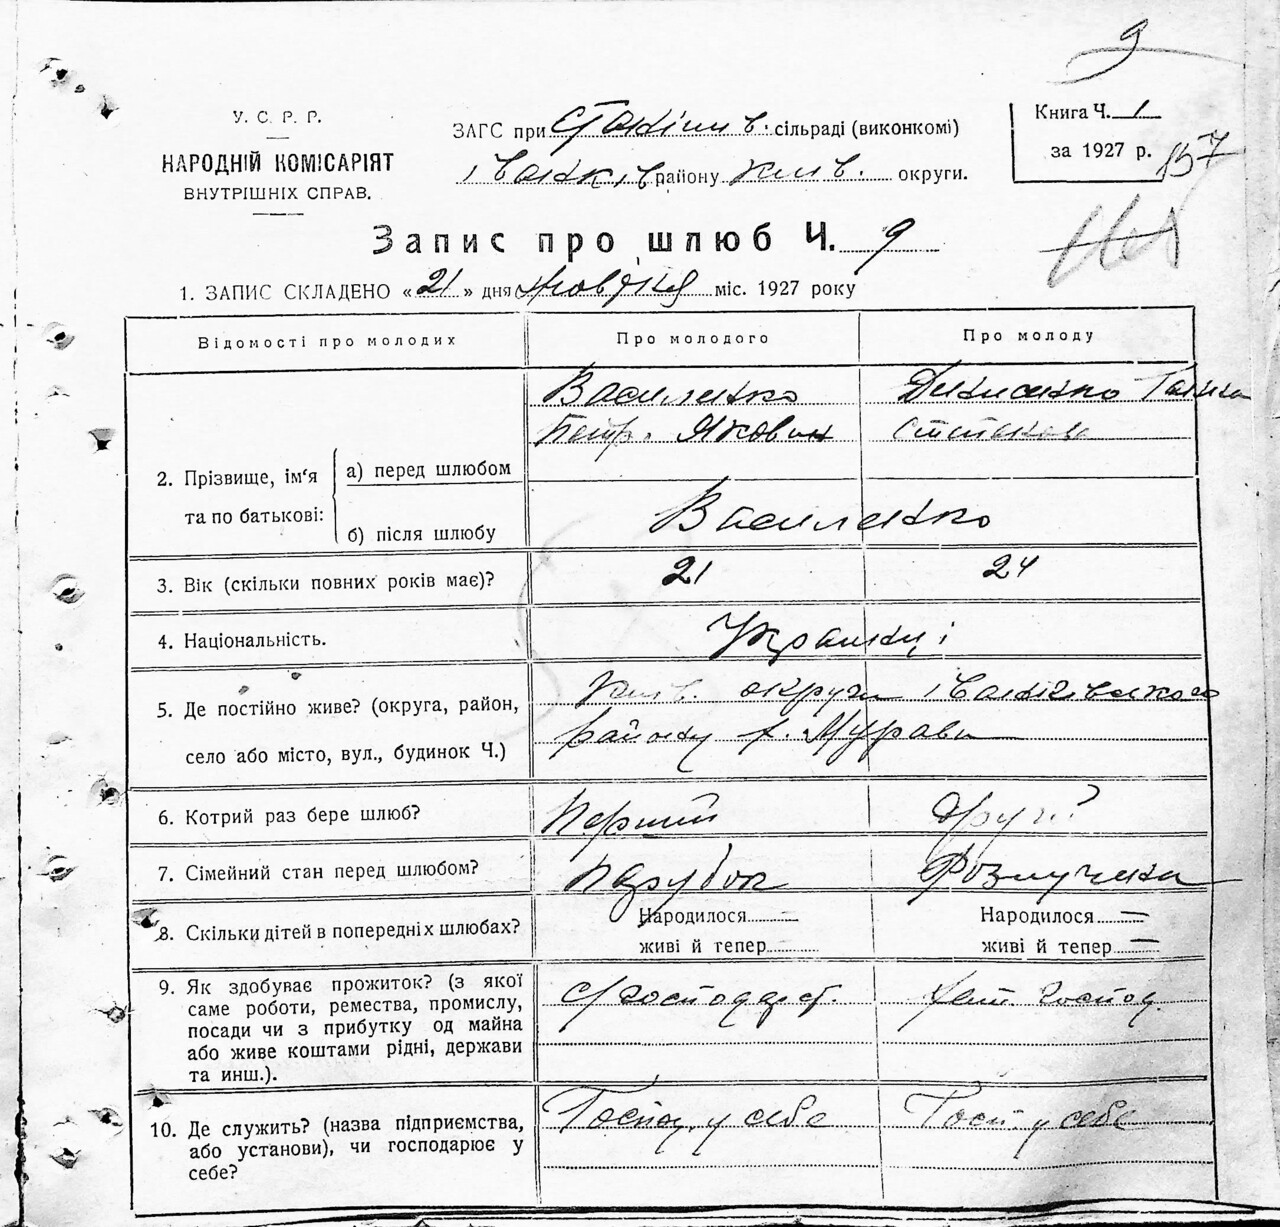 9
У. С. Р. Р.
НАРОДНІЙ КОМІСАРІЯТ
ВНУТРІШНІХ СПРАВ.
ЗАГС при сільраді (виконкомі)
Іванків району Київ. округи.
Книга Ч. 1
за 1927 р.
157
Запис про шлюб Ч. 9
1. ЗАПИС СКЛАДЕНО «21» дня міс. 1927 року
Відомості про молодих Про молодого Про молоду
Василенко Денисенко Ганна
Петр. Якович Степанова
2. Прізвище, ім'я та по батькові:
а) перед шлюбом
б) після шлюбу Василенко
3. Вік (скільки повних років має)? 21 24
4. Національність. Українці
5. Де постійно живе? (округа, район, Київ. округи Іванківського
село або місто, вул., будинок Ч.) району х. Мурава
6. Котрий раз бере шлюб? Перший Другий
7. Сімейний стан перед шлюбом? Парубок Розлучена
8. Скільки дітей в попередніх шлюбах? Народилося — Народилося —
живі й тепер — живі й тепер —
9. Як здобуває прожиток? (з якої
саме роботи, ремества, промислу, с/господарст. господ.
посади чи з прибутку од майна
або живе коштами рідні, держави
та инш.).
10. Де служить? (назва підприємства, Господ. у себе Госп. у себе
або установи), чи господарює у
себе?